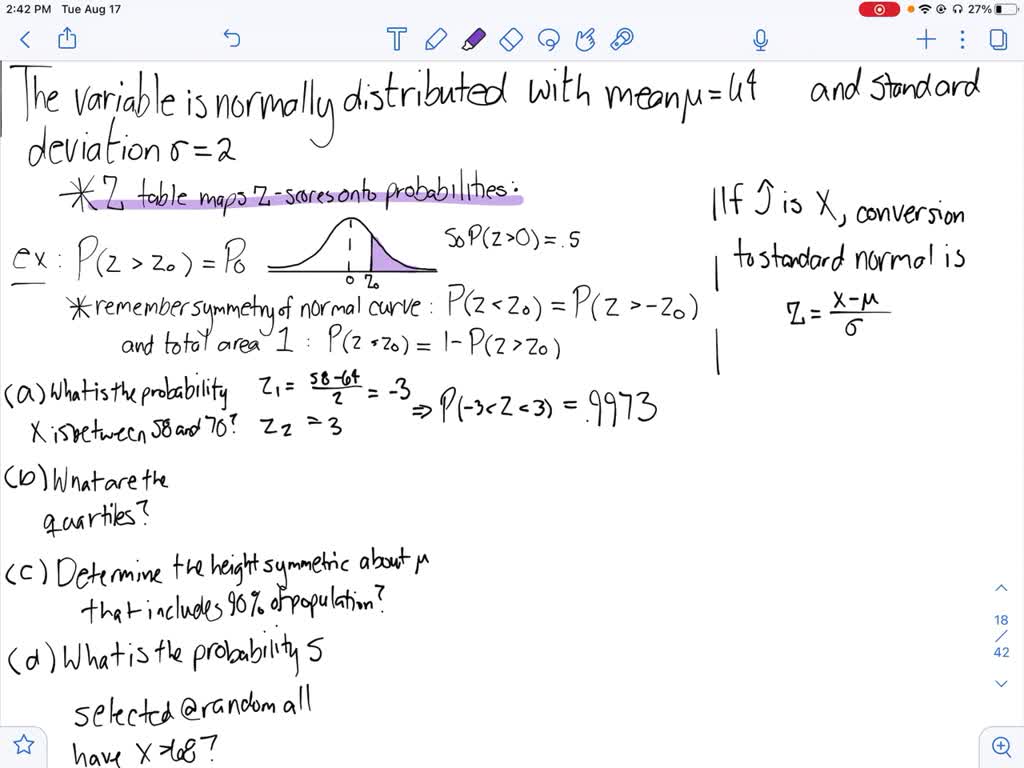 2:42 PM Tue Aug 17
27%
The variable is normally distributed with mean μ = 64 and standard
deviation σ = 2
* Z table maps Z-scores onto probabilities:
ex: P(Z > Z₀) = P₀
0 Z₀
So P(Z > 0) = .5
* remember symmetry of normal curve: P(Z < Z₀) = P(Z > -Z₀)
and total area 1: P(Z < Z₀) = 1 - P(Z > Z₀)
If ↑ is X, conversion
to standard normal is
Z = (X-μ)/σ
(a) What is the probability
X is between 58 and 70?
Z₁ = (58-64)/2 = -3
Z₂ = 3
⇒ P(-3 < Z < 3) = .9973
(b) What are the
quartiles?
(c) Determine the height symmetric about μ
that includes 90% of population?
(d) What is the probability 5
selected @ random all
have X > 68?
18
/
42